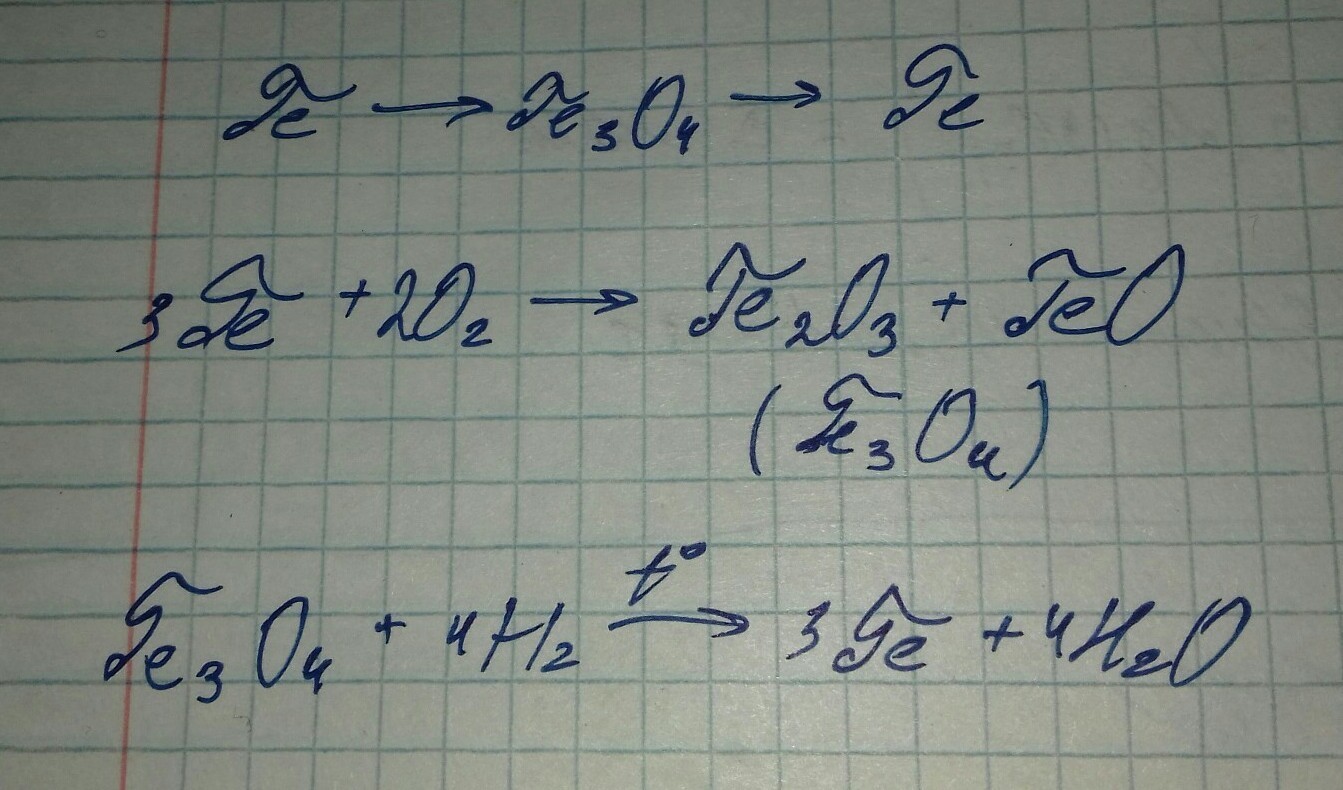 Fe → Fe₃O₄ → Fe
3Fe + 2O₂ → Fe₂O₃ + FeO
(Fe₃O₄)
t°
Fe₃O₄ + 4H₂ → 3Fe + 4H₂O